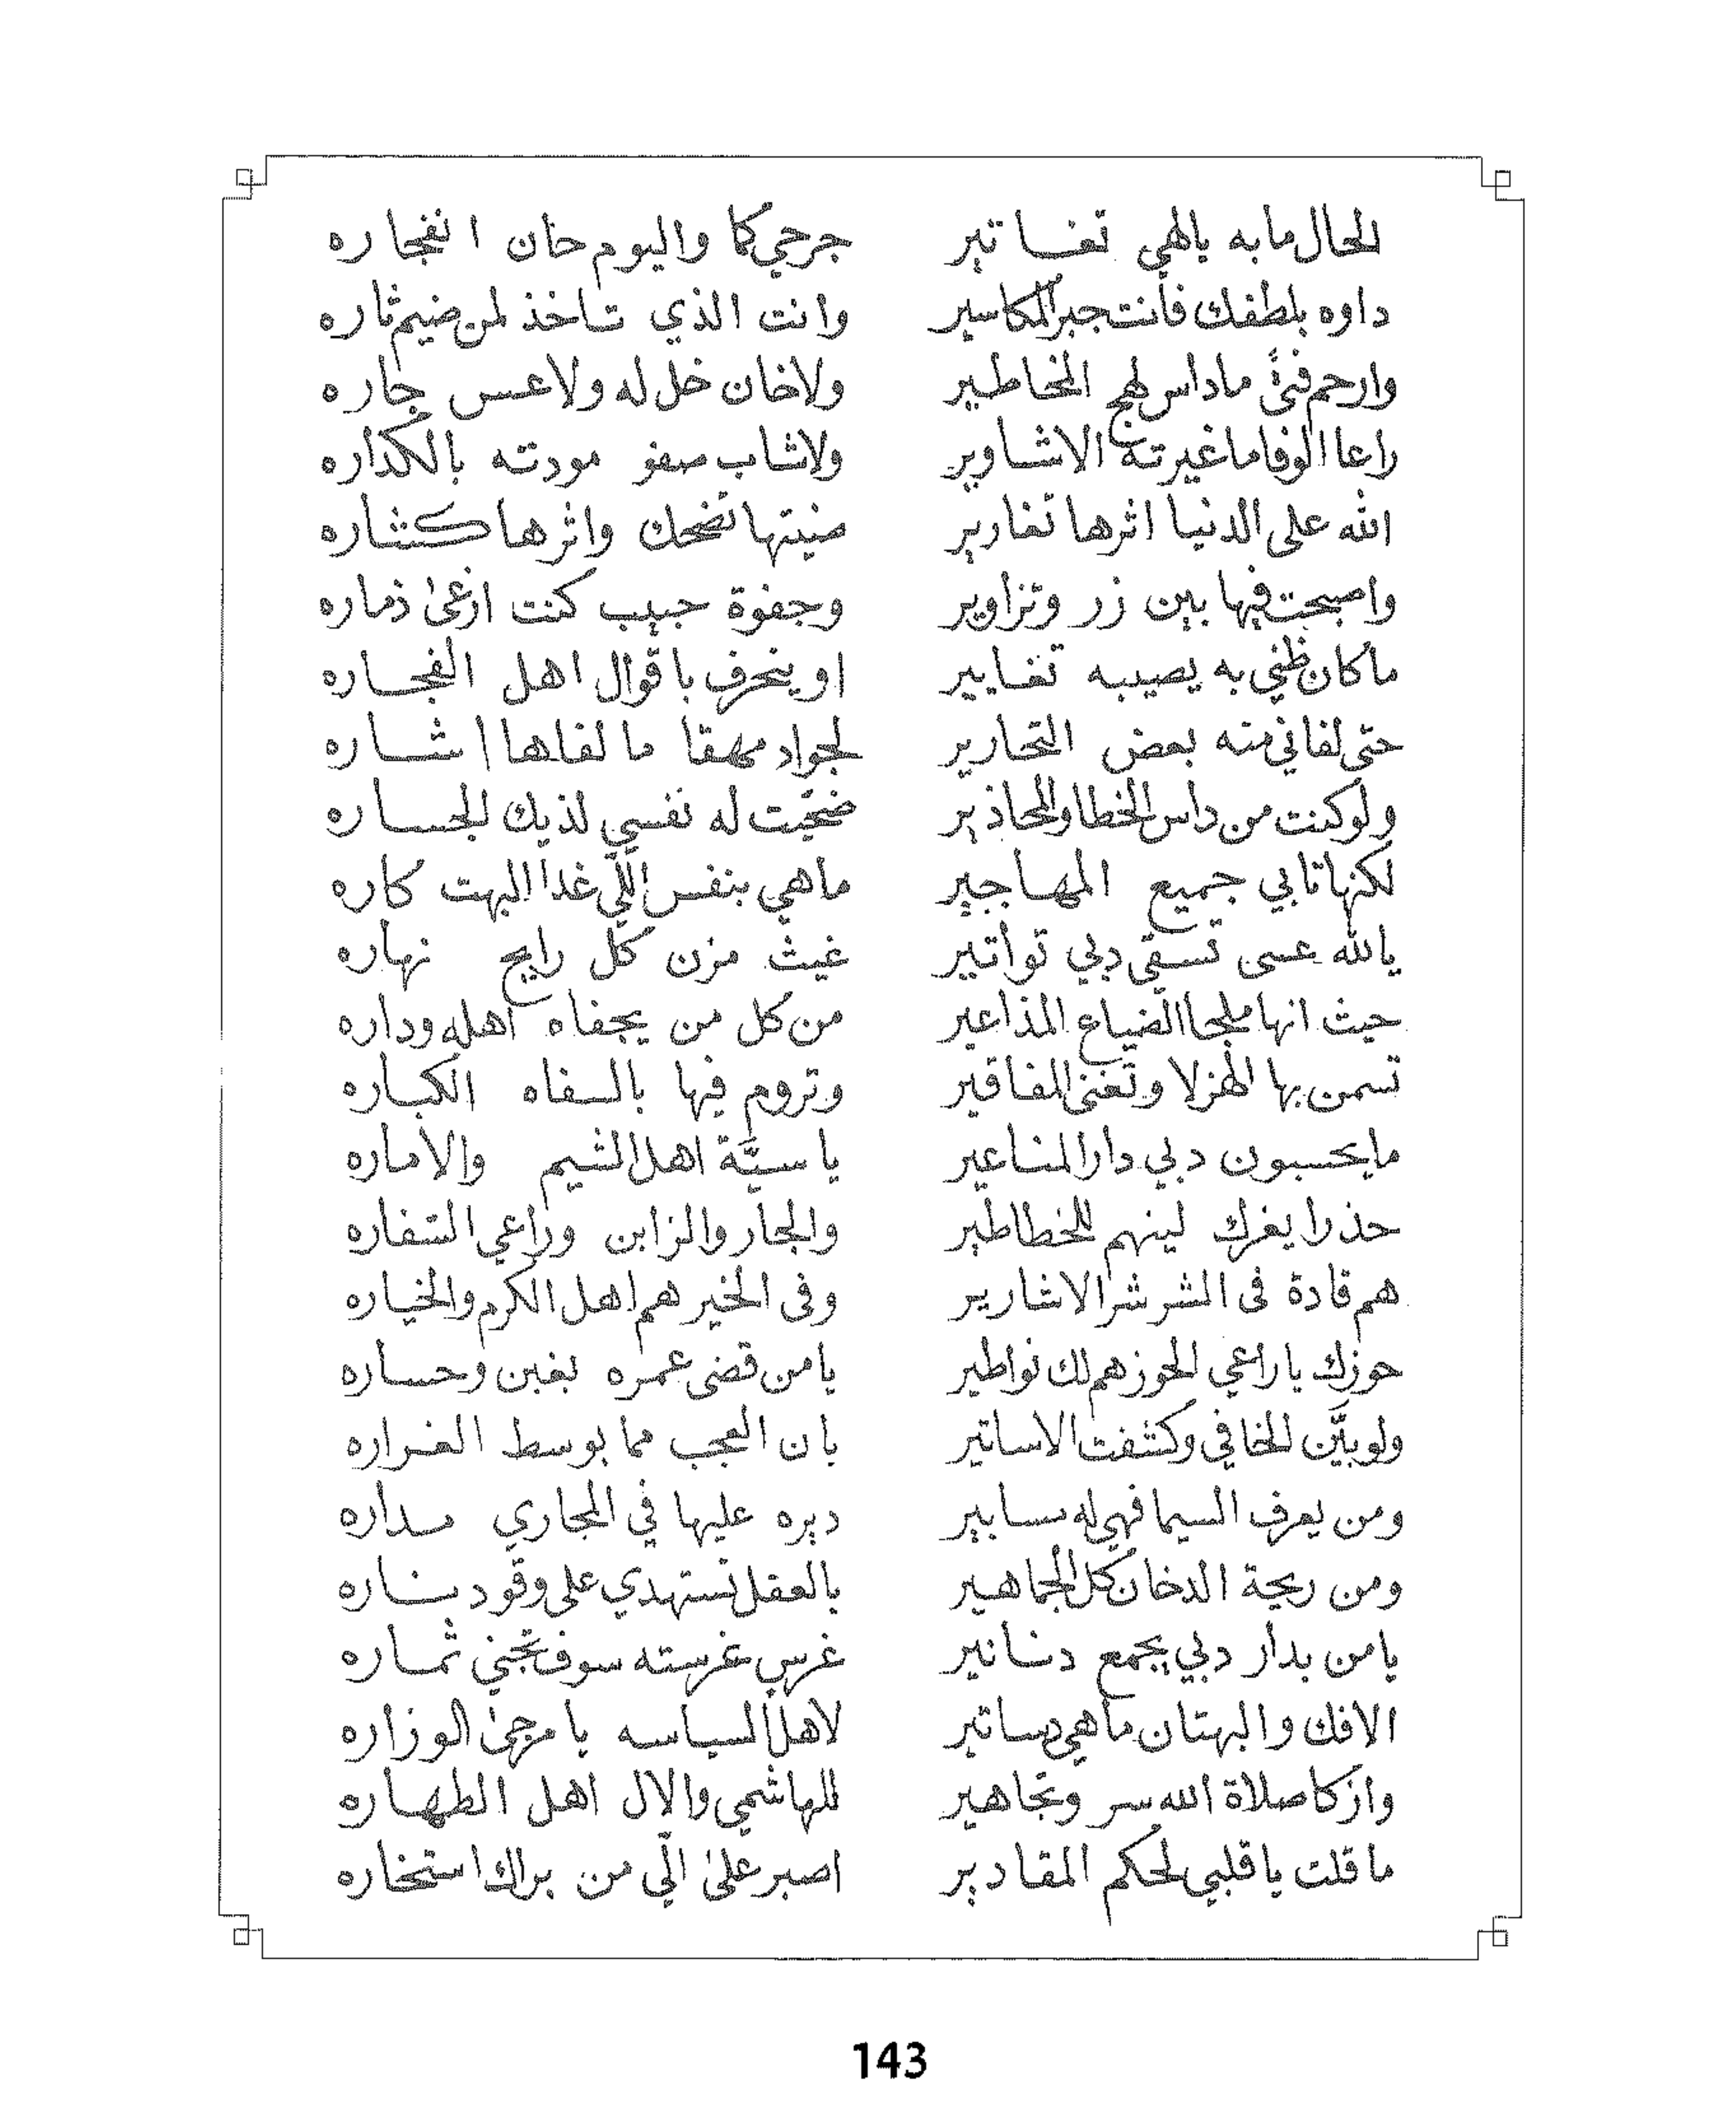 للحال ما به يالهي تغساتير جرحي كما واليوم حان انفجاره
داوه بلطفك فانت جبر المكاسير وانت الذي تاخذ لمن ضيم ثاره
وارحم فتىً ما داس لهج المخاطير ولا خان خل له ولا عس جاره
راعا الوفا ما غيرته الاشاوير ولا شاب صفو مودته بالكداره
الله على الدنيا اثرها تغارير ضنيتها تضحك واثرها كشاره
واصبحت فيها بين زر وتزاوير وجفوة حبيب كنت ازعى ذماره
ما كان ظني به يصيبه تغايير او ينحرف باقوال اهل الفجاره
حتى لفاني منه بعض التحارير لجواد مهقا ما لفاها اشاره
ولو كنت من داس الخطا والمحاذير ضحيت له نفسي لذيك الجساره
لكنها تابي جميع المهاجير ما هي بنفس اللي غدا البهت كاره
يالله عسى تسقي دبي تواتير غيث مزن كل رايح نهاره
حيث انها ملجا الضياع المذاعير من كل من يجفاه اهله وداره
تسمن بها الهزلا وتغنى المفاقير وتروم فيها بالسفاه الكباره
ما يحسبون دبي دار المناعير يا سيّة اهل الشيم والاماره
حذرا يغرك لينهم للخطاطير والجار والزابن وراعي السفاره
هم قادة فى الشر شر الاشارير وفى الخير هم اهل الكرم والخياره
حوزك يا راعي الحوز هم لك نواطير يا من قضى عمره بغبن وحساره
ولو بيّن الخافي وكشفت الاساتير بان العجب مما بوسط الغراره
ومن يعرف السيما فهي له مسابير ديره عليها في المجاري مداره
ومن ريحة الدخان كل الجماهير بالعقل تستهدي على وقود بناره
يا من بدار دبي يجمع دنانير غرس غرسته سوف تجني ثماره
الافك والبهتان ما هي دساتير لاهل السياسه يا مرجى الوزاره
وازكا صلاة الله سر وتجاهير للهاشمي والال اهل الطهاره
ما قلت يا قلبي لحكم المقادير اصبر على الّي من براك استخاره
143